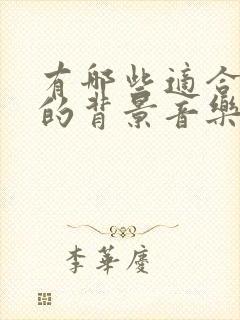 有哪些適合
的背景音樂
李華慶